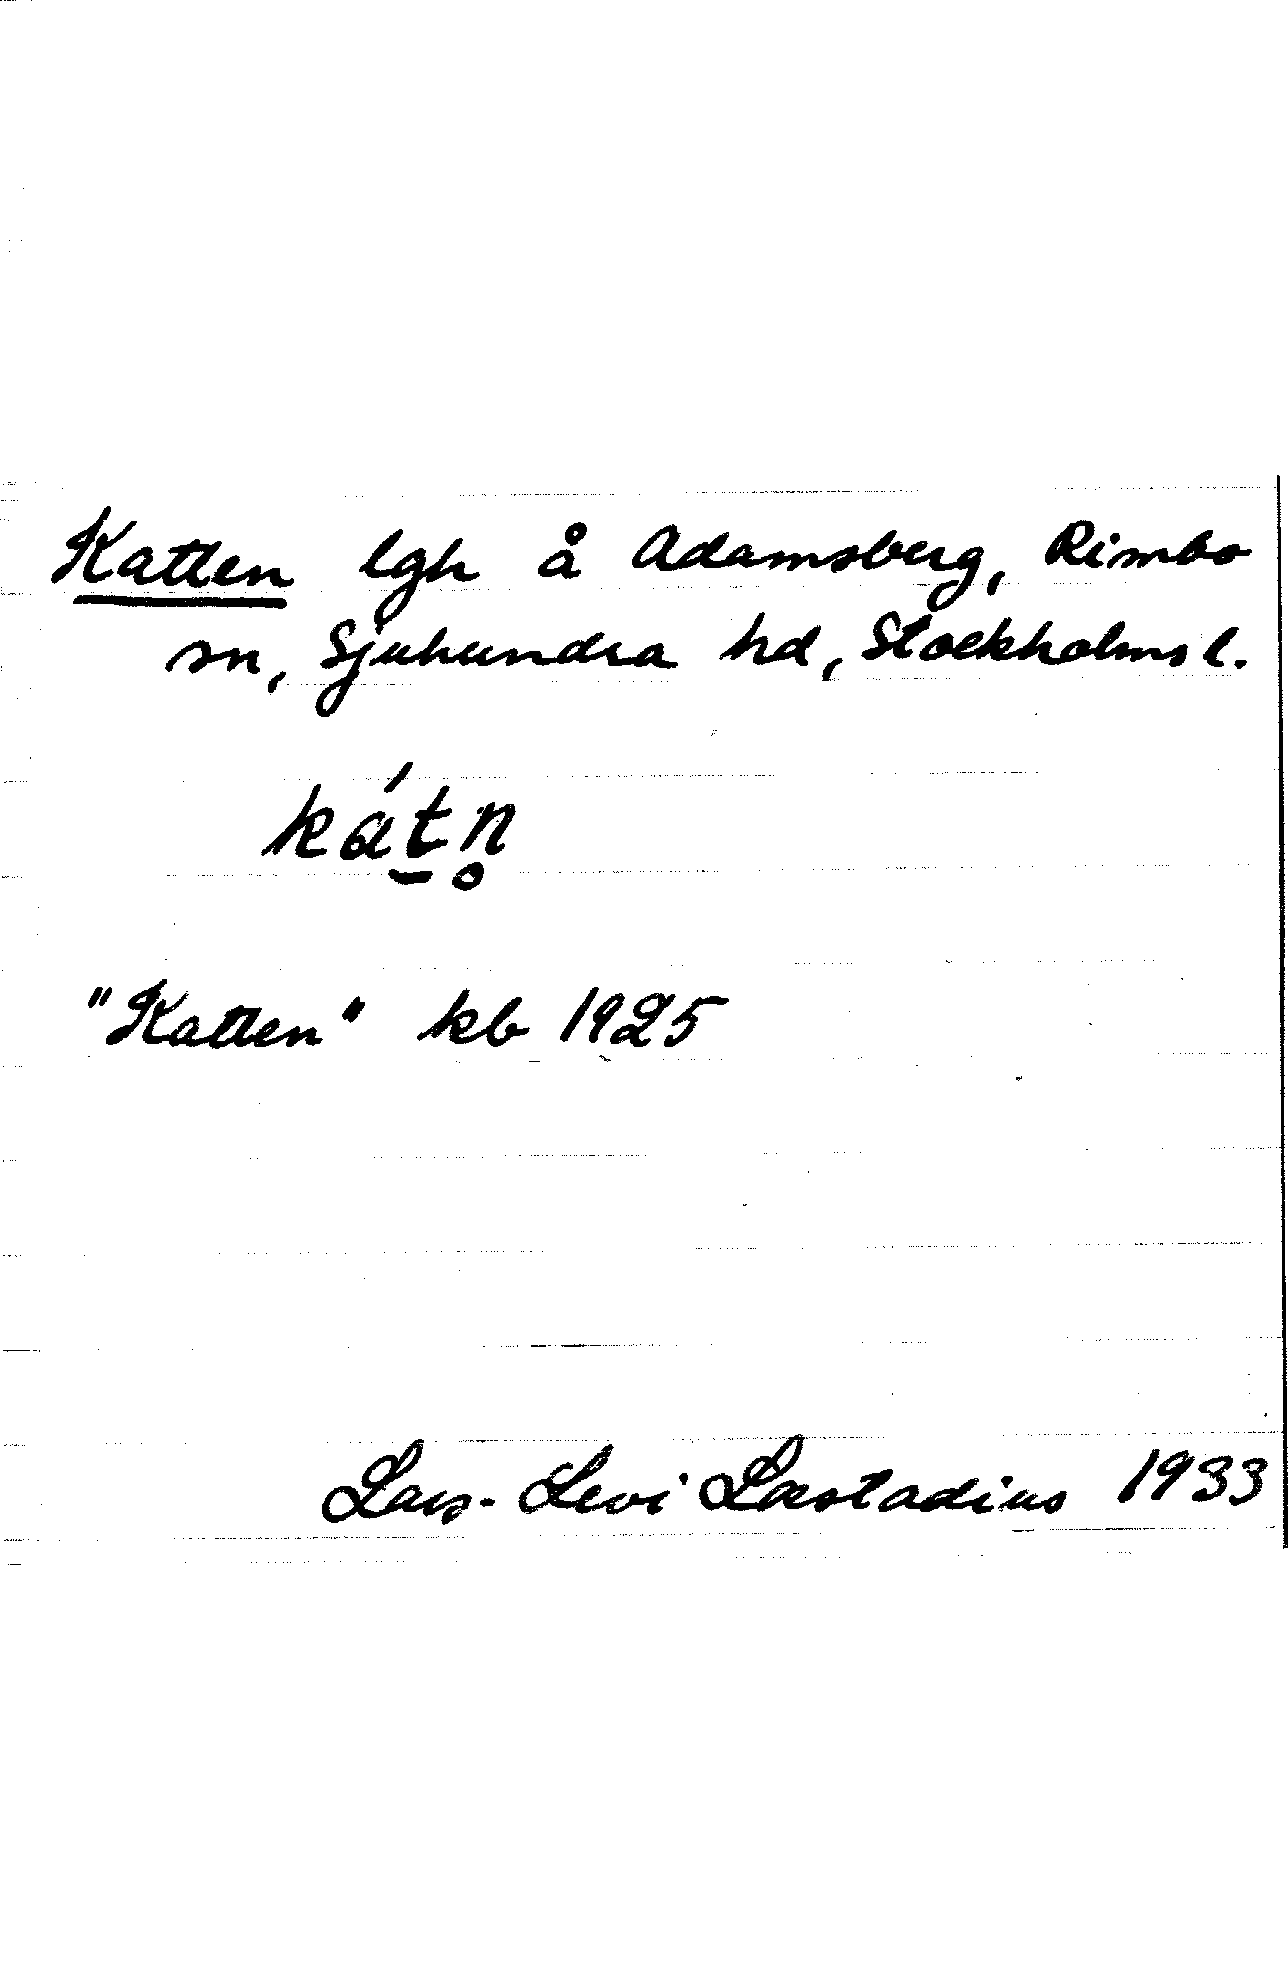 Katten lgh å Adamsberg, Rimbo
sn, Sjuhundra hd, Stockholms l.
ká̱tn̥
"Katten" kb 1925
Lars-Levi Læstadius 1933